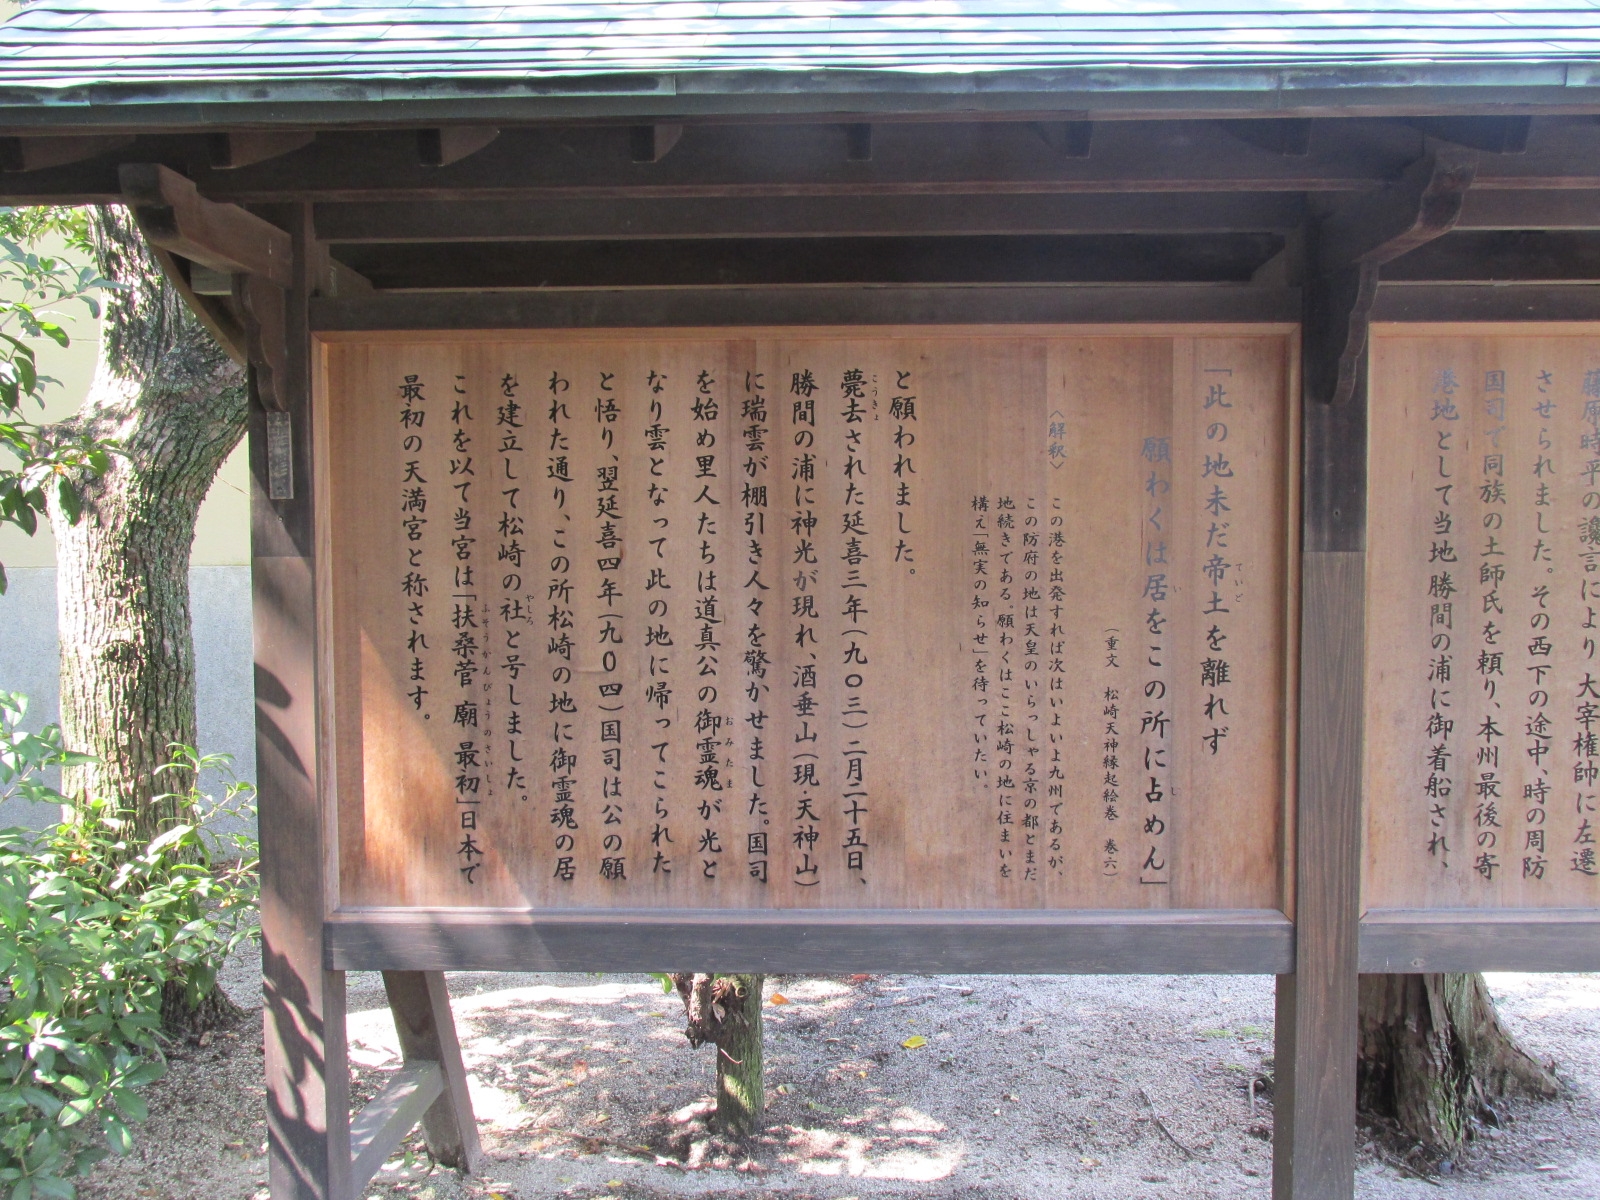 藤原時平の讒言により大宰権帥に左遷
させられました。その西下の途中、時の周防
国司で同族の土師氏を頼り、本州最後の寄
港地として当地勝間の浦に御着船され、
「此の地未だ帝土を離れず
ていど
願わくは居をこの所に占めん」
い
し
(重文 松崎天神縁起絵巻 巻六)
〈解釈〉
この港を出発すれば次はいよいよ九州であるが、
この防府の地は天皇のいらっしゃる京の都とまだ
地続きである。願わくはここ松崎の地に住まいを
構え「無実の知らせ」を待っていたい。
と願われました。
薨去された延喜三年(九〇三)二月二十五日、
こうきょ
勝間の浦に神光が現れ、酒垂山(現・天神山)
に瑞雲が棚引き人々を驚かせました。国司
を始め里人たちは道真公の御霊魂が光と
おみたま
なり雲となって此の地に帰ってこられた
と悟り、翌延喜四年(九〇四)国司は公の願
われた通り、この所松崎の地に御霊魂の居
を建立して松崎の社と号しました。
やしろ
これを以て当宮は「扶桑菅廟最初」日本で
ふそうかんびょうのさいしょ
最初の天満宮と称されます。